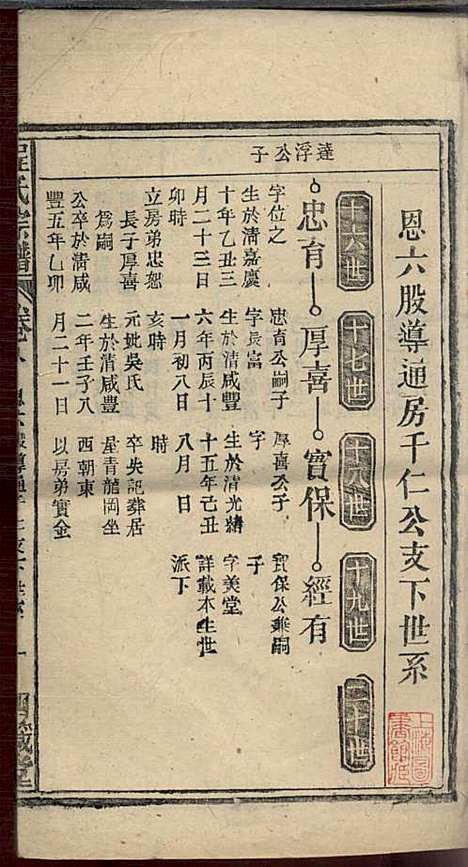 恩六股導通房千仁公支下世系
十六世
十七世
十八世
十九世
二十世
達浮公子
忠育
厚喜
實保
經有
字位之
生於清嘉慶
十年乙丑三
月二十三日
卯時
立房弟忠恕
長子厚喜
為嗣
公卒於清咸
豐五年乙卯
忠育公嗣子
字長富
生於清咸豐
六年丙辰十
一月初八日
亥時
元妣吳氏
生於清咸豐
二年壬子八
月二十一日
厚喜公子
字
生於清光緒
十五年己丑
八月 日
時
卒失記葬居
屋青龍岡坐
西朝東
以房弟實金
寶保公兼嗣
子
字美堂
詳載本生世
派下
氏宗譜
上海圖
書館所